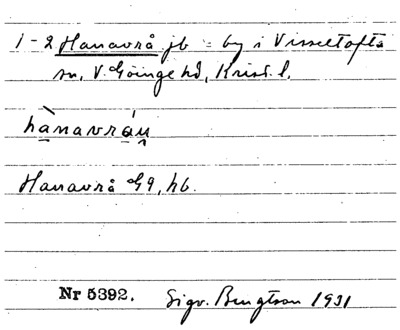 1-2 Hanavrå jb = by i Visseltofta
sn, V. Göinge hd, Krist. l.
hànavrán
Hanavrå G9, hb.
Nr 5392. Sigv. Bengtson 1931